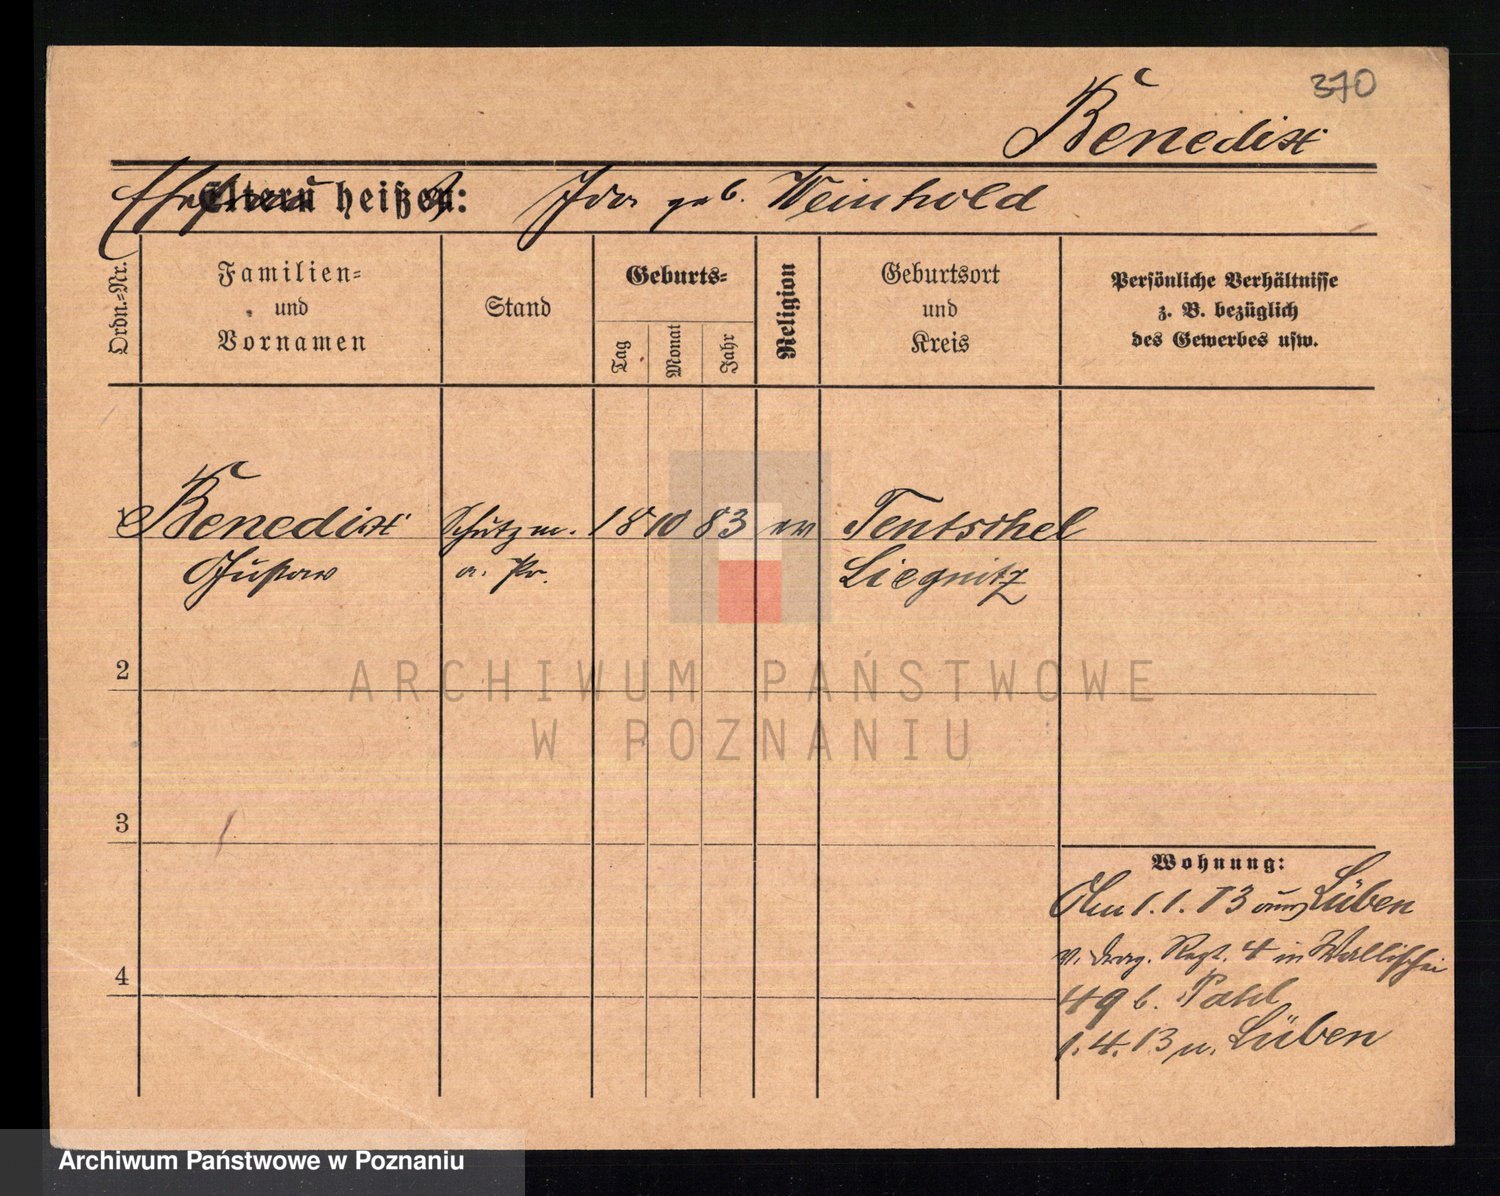 370
Benedix
Ehefrau heißt: Ida geb. Weinhold
Ordn.=Nr.
Familien=
und
Vornamen
Stand
Geburts=
Tag
Monat
Jahr
Religion
Geburtsort
und
Kreis
Persönliche Verhältnisse
z. B. bezüglich
des Gewerbes usw.
1 Benedix Schutzm. 18 10 83 ev Tentschel
Gustav a. Pr. Liegnitz
2
ARCHIWUM PAŃSTWOWE
W POZNANIU
3
4
Wohnung:
Am 1.1.13 aus Lüben
v. Drag. Regt. 4 in Wallischei
49 b. Pohl
1.4.13 n. Lüben
Archiwum Państwowe w Poznaniu